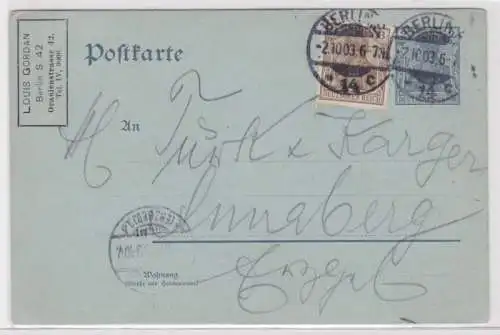 LOUIS GORDAN
Berlin S 42
Oranienstrasse 42.
Tel. IV,
Postkarte
BERLIN
-2.10.03.6-7N.
* 14 c
BERLIN
-2.10.03.6-7
14 c
DEUTSCHES REICH
An
Türk & Karger
Annaberg
Erzgeb
Wohnung
(Straße und Hausnummer)